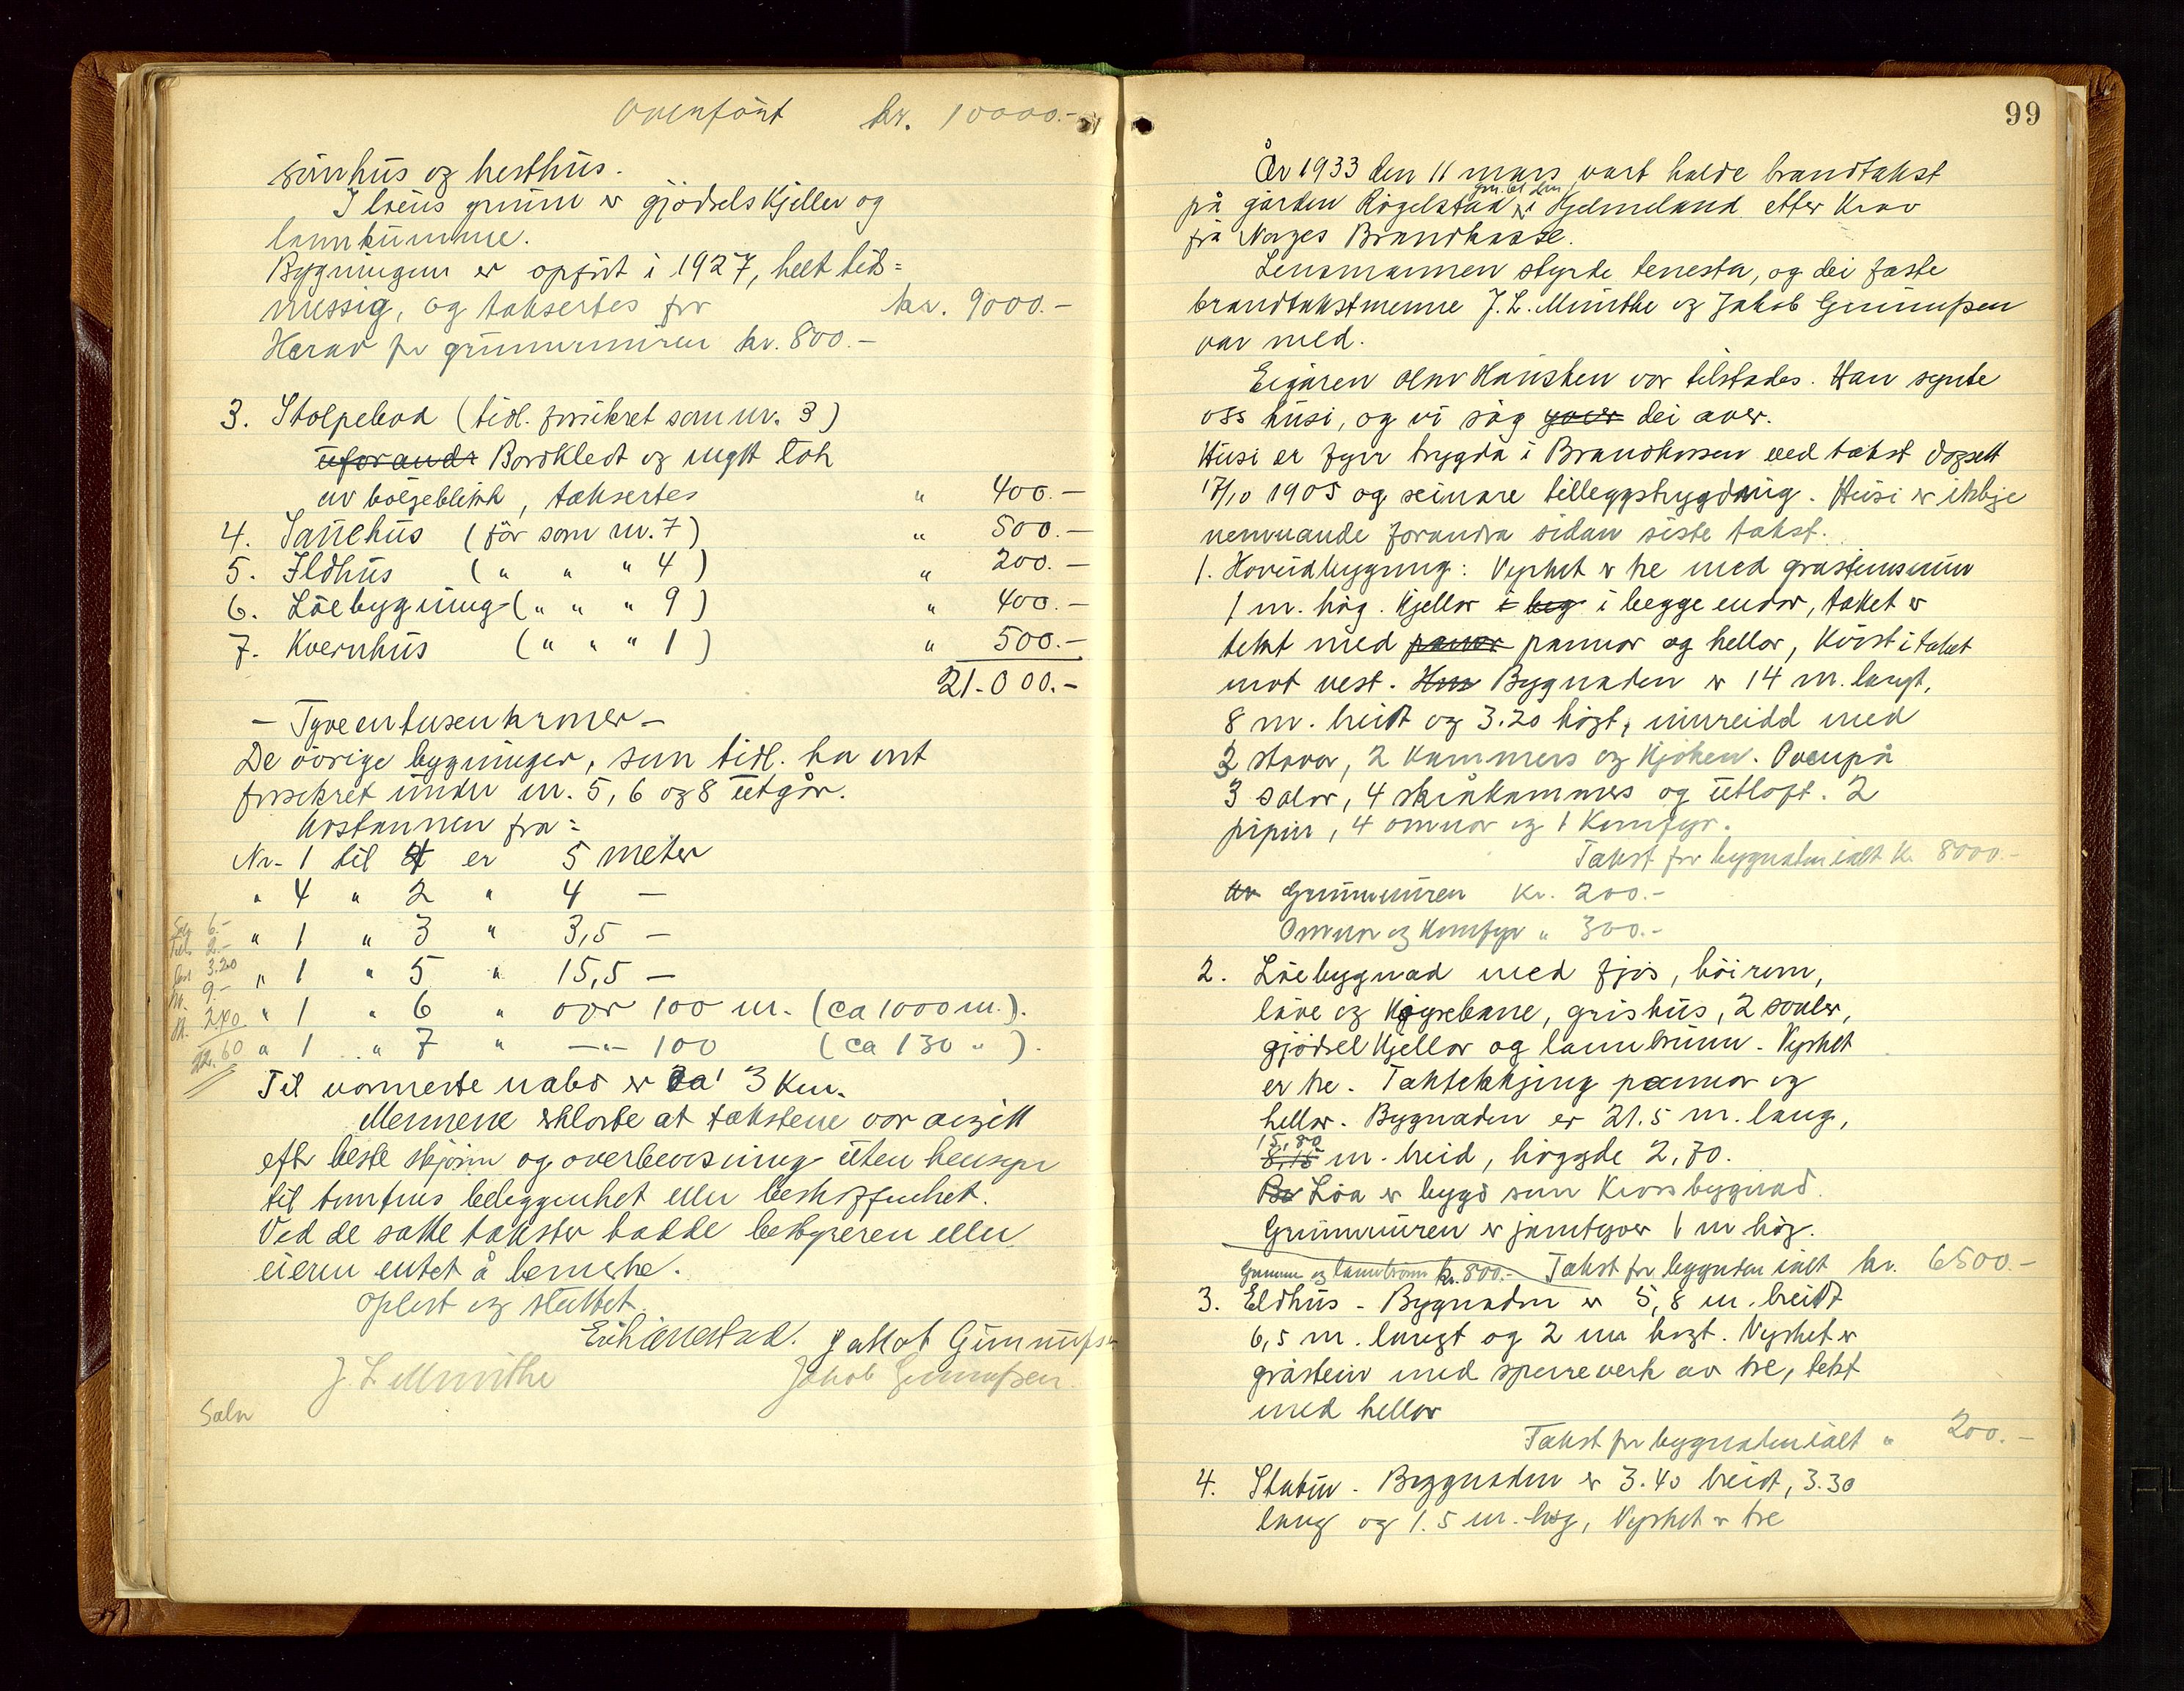 Ovenfört kr. 10000.-
sauehus og hesthus.
I löens grunn er gjödselskjeller og
lannkumme.
Bygningen er opfört i 1927, helt tids=
messig, og taksertes for kr. 9000.-
Herav for grunnmuren kr. 800.-
3. Stolpebod (tidl. forsikret som nr. 3)
uforandr Bordkledt og nytt tak
av bölgeblikk, taksertes " 400.-
4. Sauehus (för som nr. 7) " 500.-
5. Ildhus ( " " " 4 ) " 200.-
6. Löebygning ( " " " 9 ) " 400.-
7. Kvernhus ( " " " 1 ) " 500.-
21.000.-
- Tyveentusenkroner -
De övrige bygninger, som tidl. ha vert
forsikret under nr. 5, 6 og 8 utgår.
Avstannen fra:
Nr. 1 til 4 er 5 meter
" 4 " 2 " 4 -
" 1 " 3 " 3,5 -
" 1 " 5 " 15,5 -
" 1 " 6 " over 100 m. (ca 1000 m.).
" 1 " 7 " -"- 100 (ca 130 " ).
6.-
2.-
3.20
9.-
2.40
22.60
Til nærmeste nabo er ca 3 km.
Mennene erklærte at takstene var avgitt
efter beste skjönn og overbevisning uten hensyn
til tomtens beleggenhet eller beskaffenhet.
Ved de satte takster hadde bestyreren eller
eieren intet å bemerke.
Oplest og sluttet.
Jakob Gunnufsen
J. L. Munthe Jakob Gunnufsen
99
År 1933 den 11 mars vart halde brandtakst
på garden Rögelstad i Hjelmeland etter krav
frå Norges Brandkasse.
Lensmannen styrde tenesta, og dei faste
brandtakstmenne J. L. Munthe og Jakob Gunnufsen
var med.
Eigaren Olav Hausken var tilstades. Han synte
oss husi, og vi såg yver dei over.
Husi er fyrr trygda i Brandkassen ved takst dagsett
17/10 1905 og seinare tilleggstrygdning. Husi er ikkje
nemnande forandra sidan siste takst.
1. Hovudbygning: Vyrket er tre med gråsteinsmur
1 m. hög. Kjellar i beg i begge endar, taket er
tekt med panner pannor og hellor, Kvist i taket
mot vest. Bygnaden er 14 m. langt,
8 m. breidt og 3.20 högt, innreidd med
2 stover, 2 kammers og kjöken. Ovenpå
3 salar, 4 skråkammers og utloft. 2
pipur, 4 omnar og 1 komfyr.
Takst for bygnaden ialt kr. 8000.-
Av Grunnmuren kr. 200.-
Omnar og komfyr " 300.-
2. Löebygnad med fjös, höirom,
låve og kjøyrebane, grishus, 2 soaler,
gjödselkjellar og lannbrunn. Vyrket
er tre. Taktekkjing pannor og
hellar. Bygnaden er 21.5 m. lang,
15,80
8,15 m. breid, höggde 2,70.
Löa er bygd som krossbygnad.
Grunnmuren er jamtyver 1 m hög.
Grunnm og lannbrunn kr. 800.- Takst for bygnaden ialt kr. 6500.-
3. Eldhus - Bygnaden er 5,8 m. breidt
6,5 m. langt og 2 m högt. Vyrket er
gråstein med sperreverk av tre, tekt
med hellor
Takst for bygnaden ialt " 200.-
4. Stabur. Bygnaden er 3.40 breidt, 3.30
lang og 1.5 m. hög, Vyrket er tre